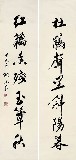 杜鵑聲里斜陽暮
紅藕香殘玉簟秋